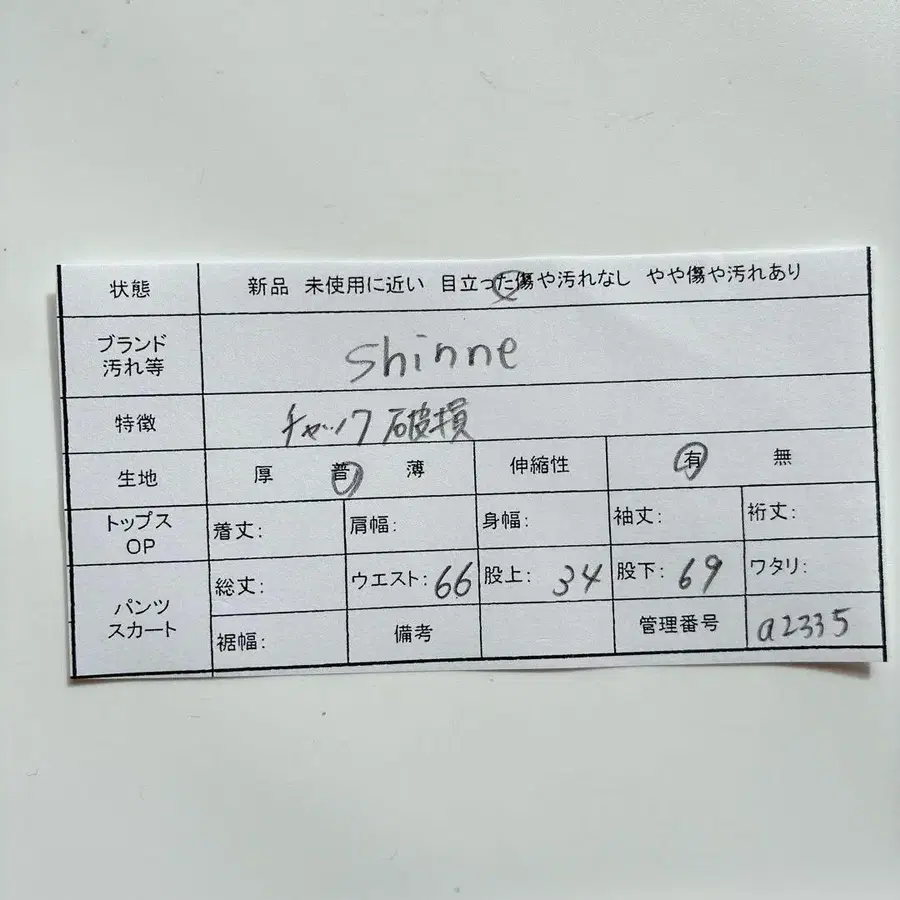 状態 新品 未使用に近い 目立った傷や汚れなし やや傷や汚れあり
ブランド
汚れ等
shinne
特徴 チャック破損
生地 厚 普 薄 伸縮性 有 無
トップス
OP
着丈: 肩幅: 身幅: 袖丈: 裄丈:
パンツ
スカート
総丈: ウエスト: 66 股上: 34 股下: 69 ワタリ:
裾幅: 備考 管理番号 a2335